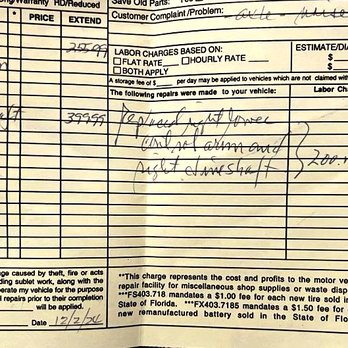 Warranty HD/Reduced
Save Old Parts:
Customer Complaint/Problem: axle - noise
* PRICE EXTEND
25599
LABOR CHARGES BASED ON:
FLAT RATE HOURLY RATE
BOTH APPLY
ESTIMATE/DIA
$
$
A storage fee of $ per day may be applied to vehicles which are not claimed with
The following repairs were made to your vehicle: Labor Cha
39999
Replaced right lower
control arm and
right driveshaft
200.
age caused by theft, fire or acts
ding sublet work, along with the
erate my vehicle for the purpose
l repairs prior to their completion
will be applied.
Date 12/2/24
**This charge represents the cost and profits to the motor ve
repair facility for miscellaneous shop supplies or waste disp
**FS403.718 mandates a $1.00 fee for each new tire sold in
State of Florida. **FX403.7185 mandates a $1.50 fee for
new remanufactured battery sold in the State of Flo